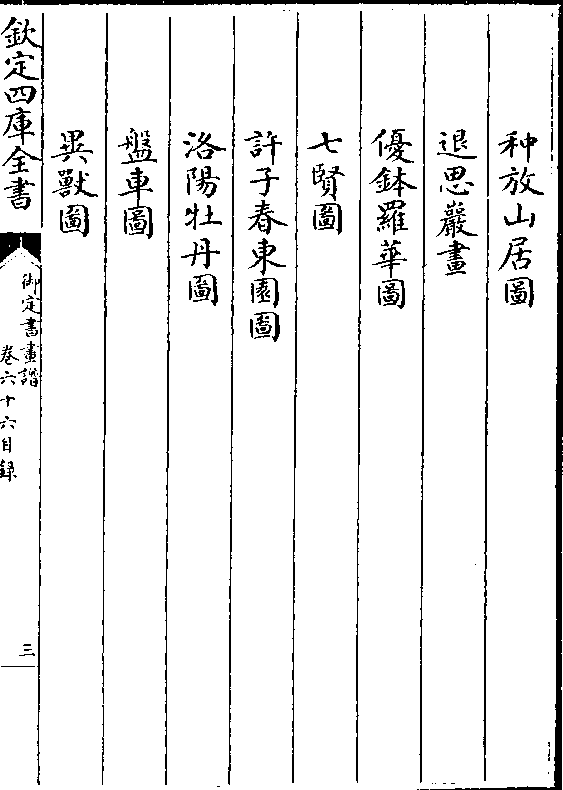 种放山居圖
退思巖畫
優鉢羅華圖
七賢圖
許子春東園圖
洛陽牡丹圖
盤車圖
異獸圖
欽定四庫全書
御定書畫譜
卷六十六目録
三